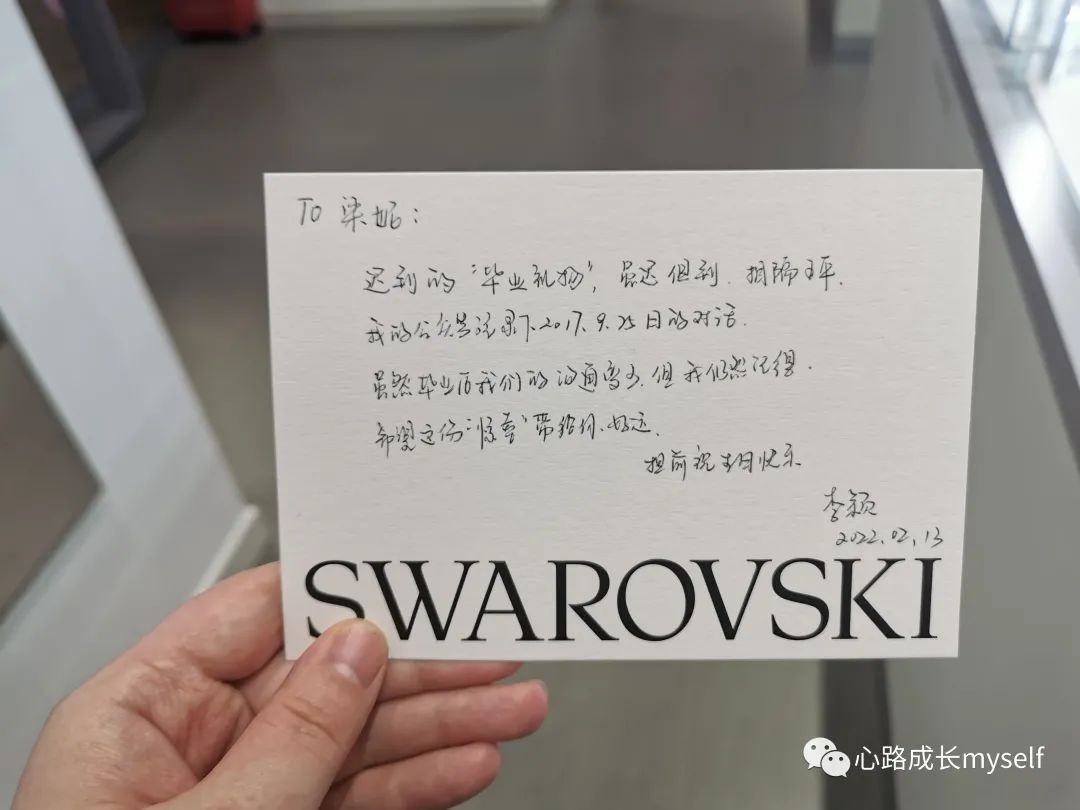 To 染妮：
迟到的“毕业礼物”，虽迟但到.相隔5年.
我的公众号记录下2017.9.25日的对话.
虽然毕业后我们的沟通变少.但我仍然记得.
希望这份“惊喜”带给你好运.
提前祝生日快乐
李颖
2022.02.13
SWAROVSKI
心路成长myself